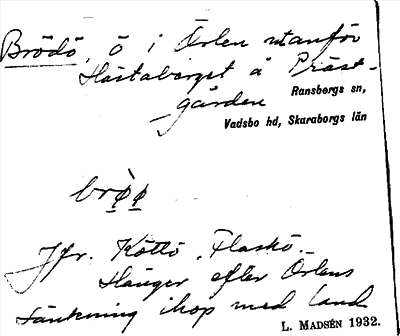 Brödö, ö i Örlen utanför
Hästaberget å Präst-
gården
Ransbergs sn,
Vadsbo hd, Skaraborgs län
brø̀ø
Jfr. Köttö, Flaskö.
Hänger efter Örlens
sänkning ihop med land
L. MADSÉN 1932.